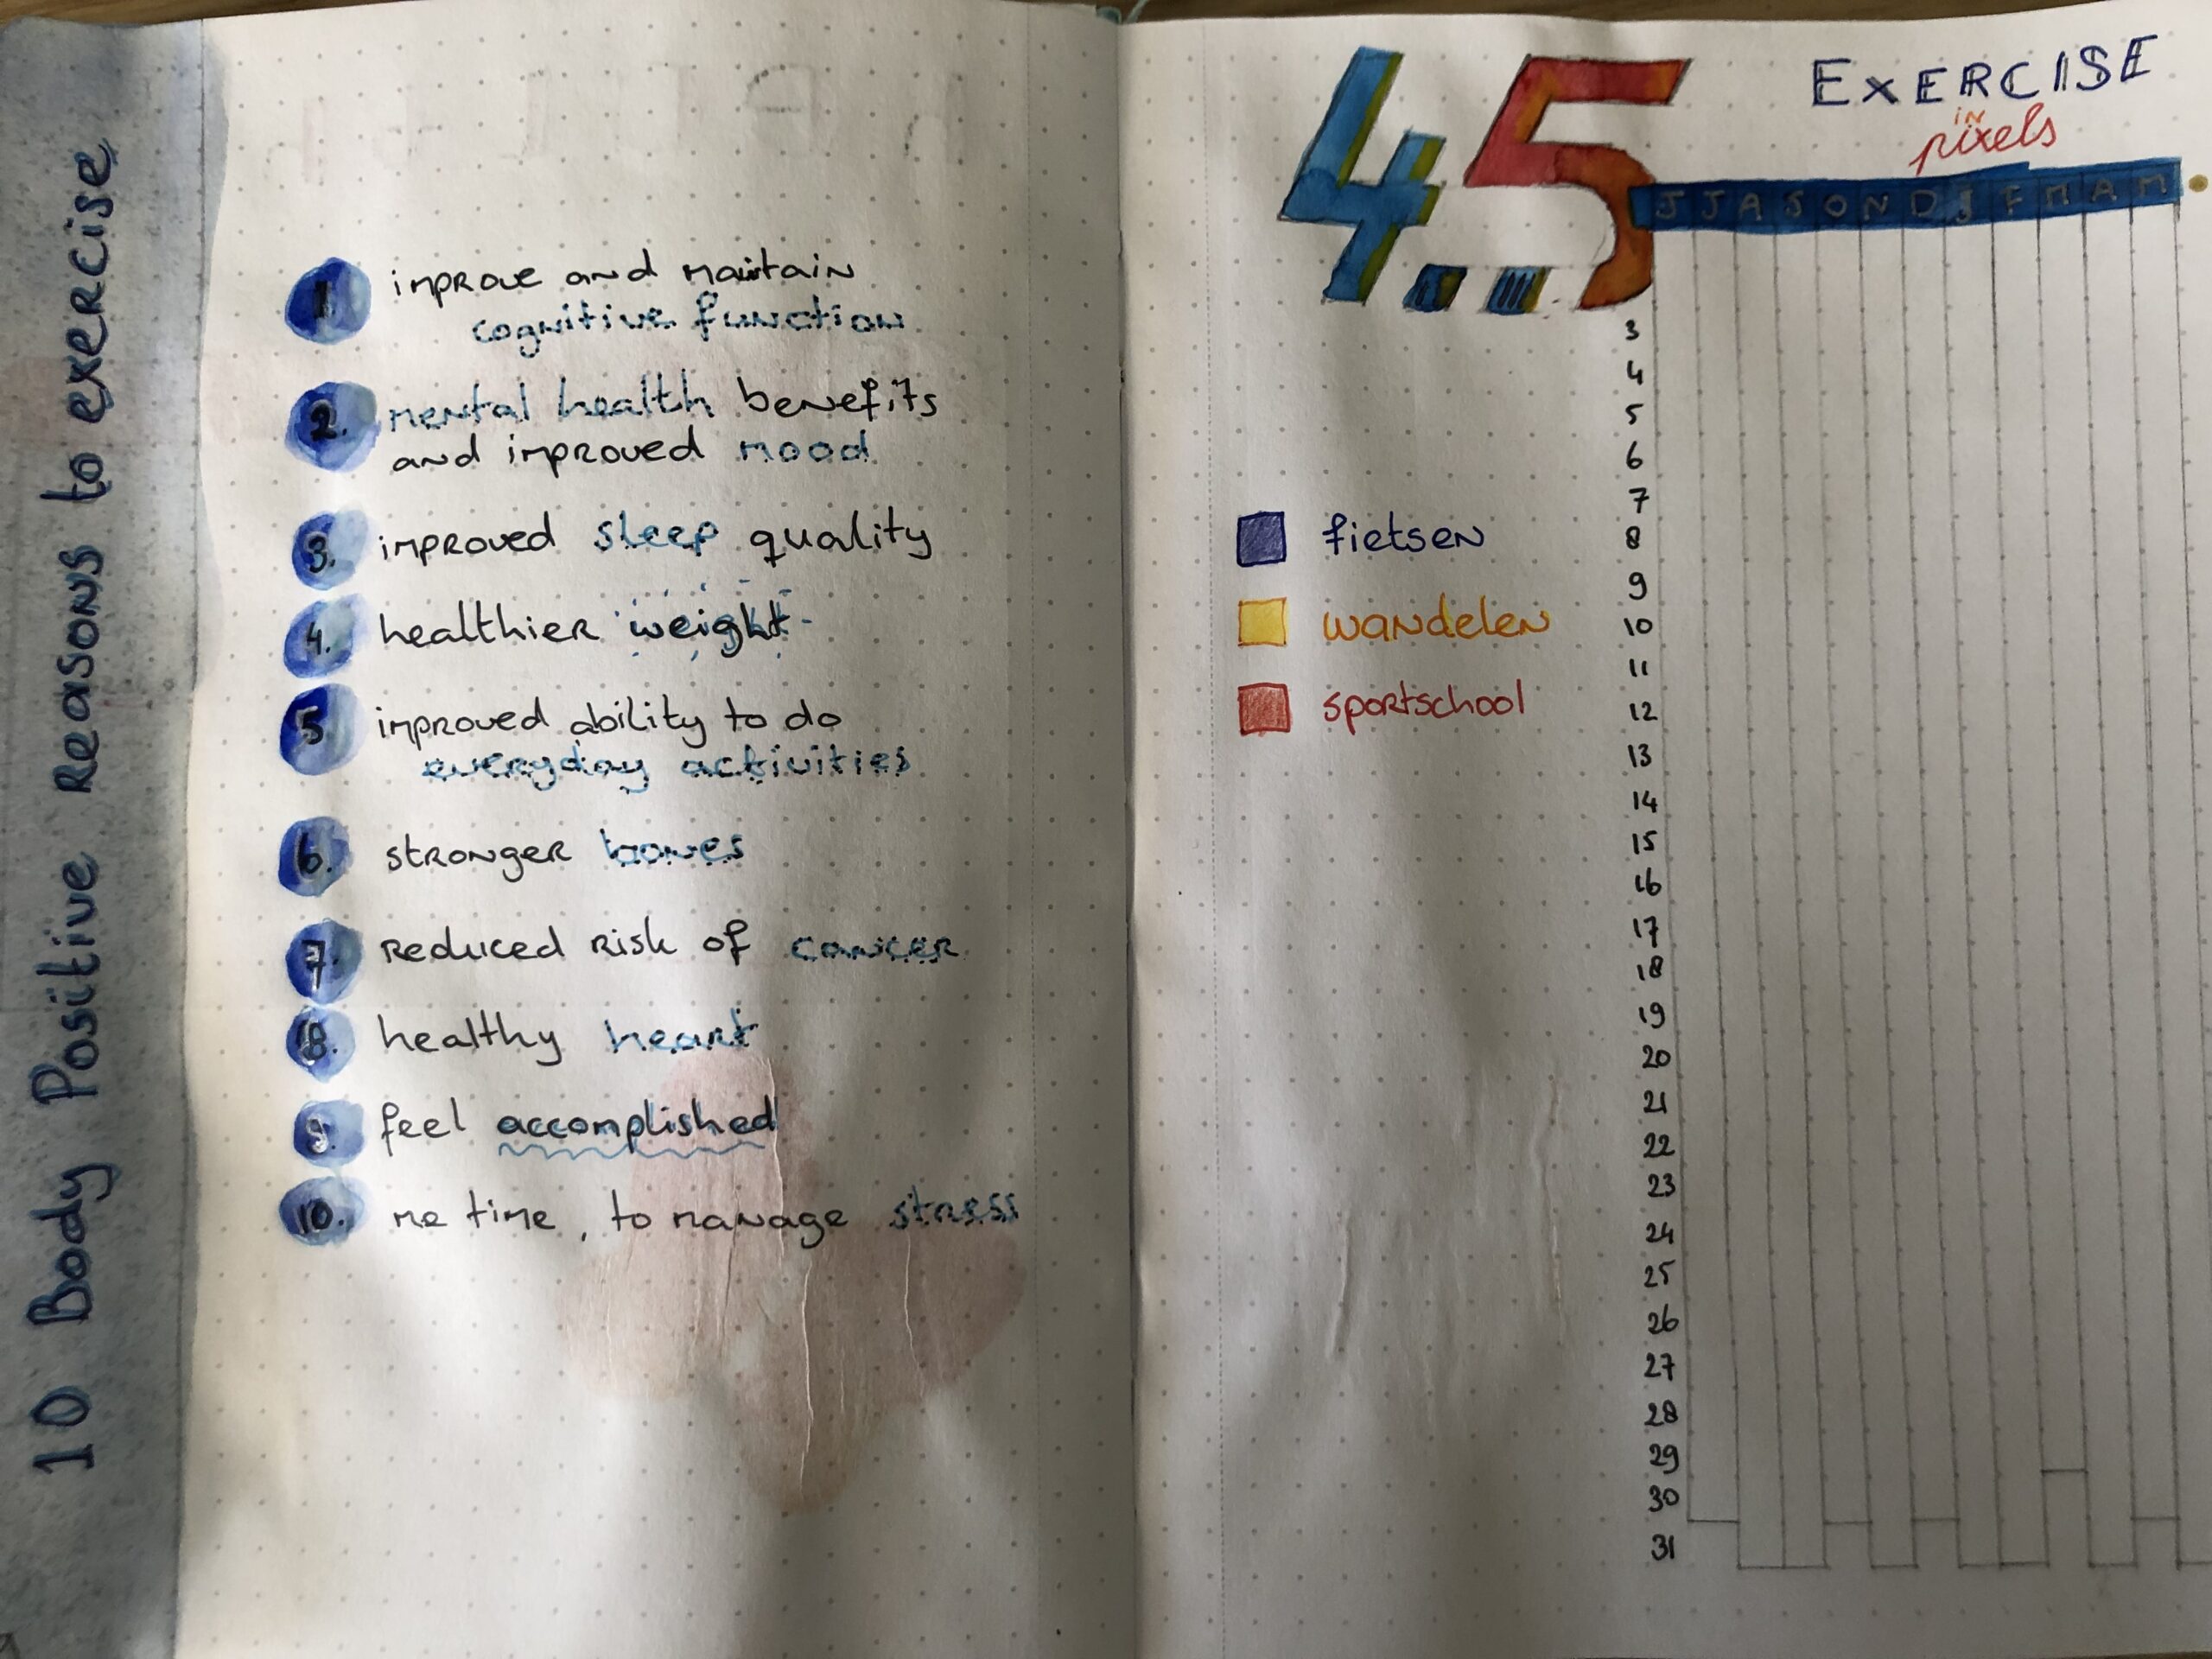 10 Body Positive Reasons to exercise
1. improve and maintain
cognitive function
2. mental health benefits
and improved mood
3. improved sleep quality
4. healthier weight
5 improved ability to do
everyday activities
6. stronger bones
7. reduced risk of cancer
8. healthy heart
9. feel accomplished
10. me time, to manage stress
4.5
EXERCISE
in
pixels
J J A S O N D J F M A M
fietsen
wandelen
sportschool
3
4
5
6
7
8
9
10
11
12
13
14
15
16
17
18
19
20
21
22
23
24
25
26
27
28
29
30
31